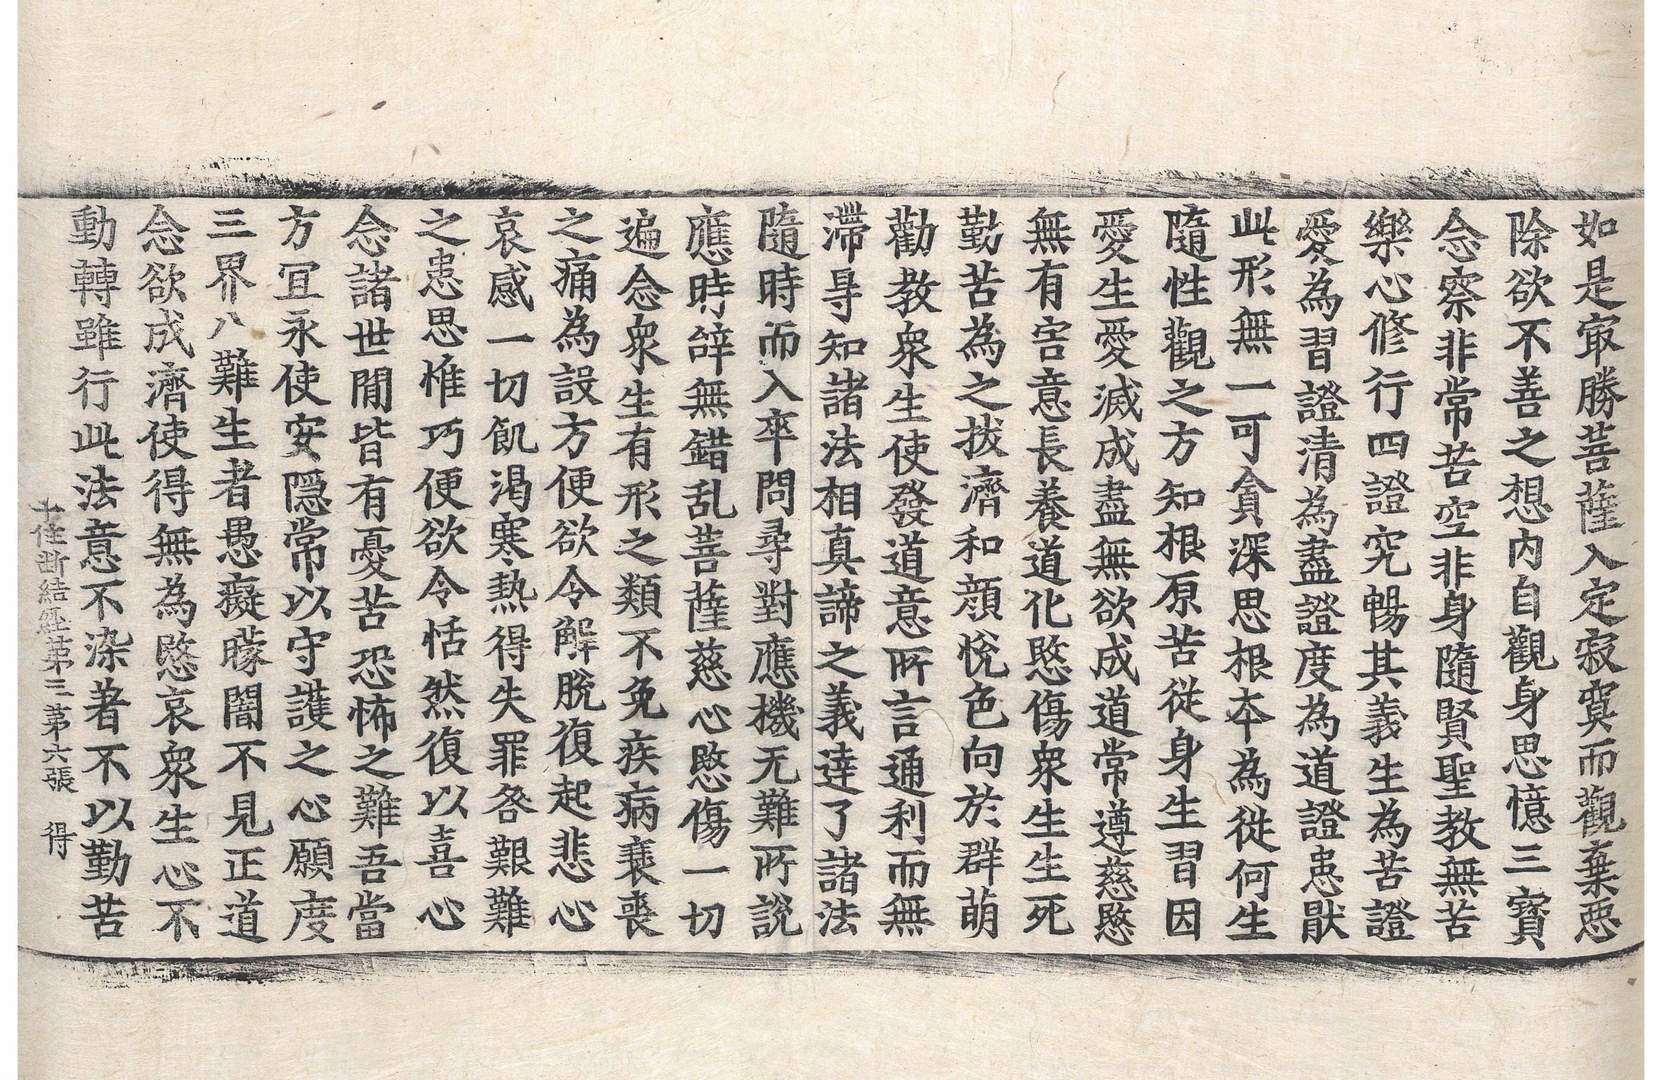 如是冣勝菩薩入定寂寞而觀棄惡
除欲不善之想內自觀身思憶三寶
念察非常苦空非身隨賢聖教無苦
樂心修行四證究暢其義生為苦證
愛為習證清為盡證度為道證患猒
此形無一可貪深思根本為從何生
隨性觀之方知根原苦從身生習因
愛生愛滅成盡無欲成道常遵慈愍
無有害意長養道化愍傷衆生生死
勤苦為之拔濟和顏恱色向於群萌
勸教衆生使發道意所言通利而無
滯㝵知諸法相真諦之義達了諸法
隨時而入卒問尋對應機无難所說
應時辝無錯乱菩薩慈心愍傷一切
遍念衆生有形之類不免疾病衰喪
之痛為設方便欲令解脫復起悲心
哀感一切飢渴寒熱得失罪咎艱難
之患思惟巧便欲令恬然復以喜心
念諸世間皆有憂苦恐怖之難吾當
方冝永使安隱常以守護之心願度
三界八難生者愚癡矇闇不見正道
念欲成濟使得無為愍哀衆生心不
動轉雖行此法意不染著不以勤苦
十住断結経第三第六張 得